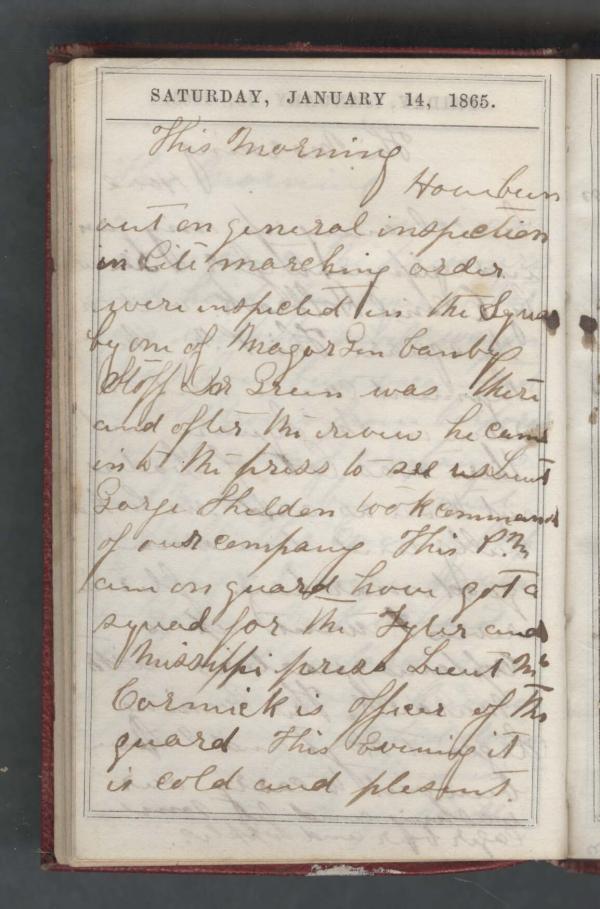 SATURDAY, JANUARY 14, 1865.
This Morning
Have been
out on general inspection
in Lite marching order
were inspected in the Squar
by one of Magor Gen Canbys
Staff Dr Green was there
and after the review he came
in to the press to see us Lieut
Gorge Sheldon took command
of our company This P.M
am on guard have got a
squad for the Tyler and
Missippi press Lieut Mc
Cormick is officer of the
guard This Evening it
is cold and plesent.